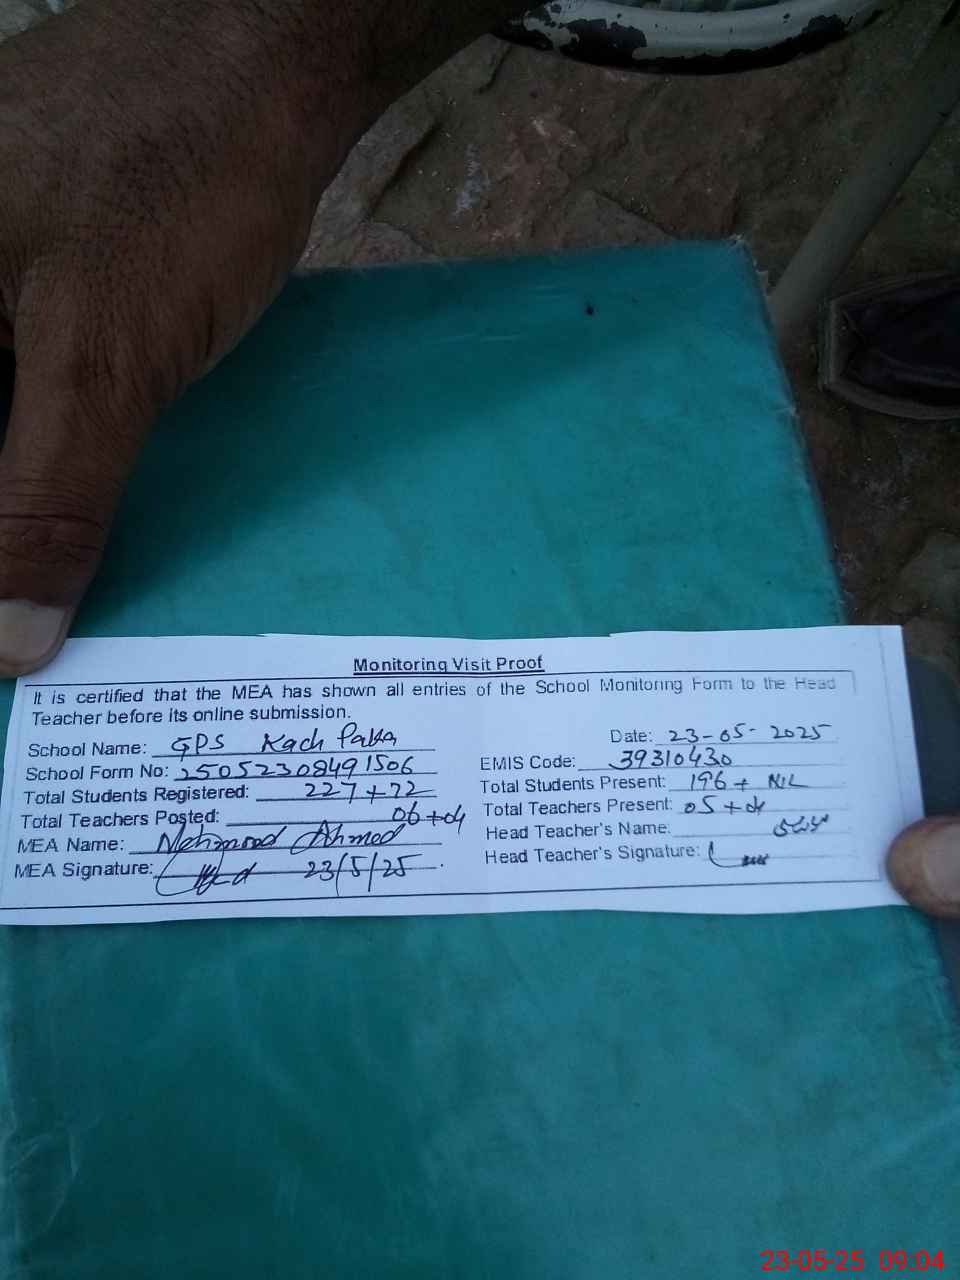 Monitoring Visit Proof
It is certified that the MEA has shown all entries of the School Monitoring Form to the Head
Teacher before its online submission.
Date: 23-05-2025
School Name: GPS Kach
EMIS Code: 39310430
School Form No: 25052308491506
Total Students Present: 196 + NIL
Total Students Registered: 227+72
Total Teachers Present: 05+04
Total Teachers Posted: 06+04
Head Teacher's Name:
MEA Name: Mehmood Ahmed
Head Teacher's Signature:
MEA Signature: 23/5/25
23-05-25 09:04